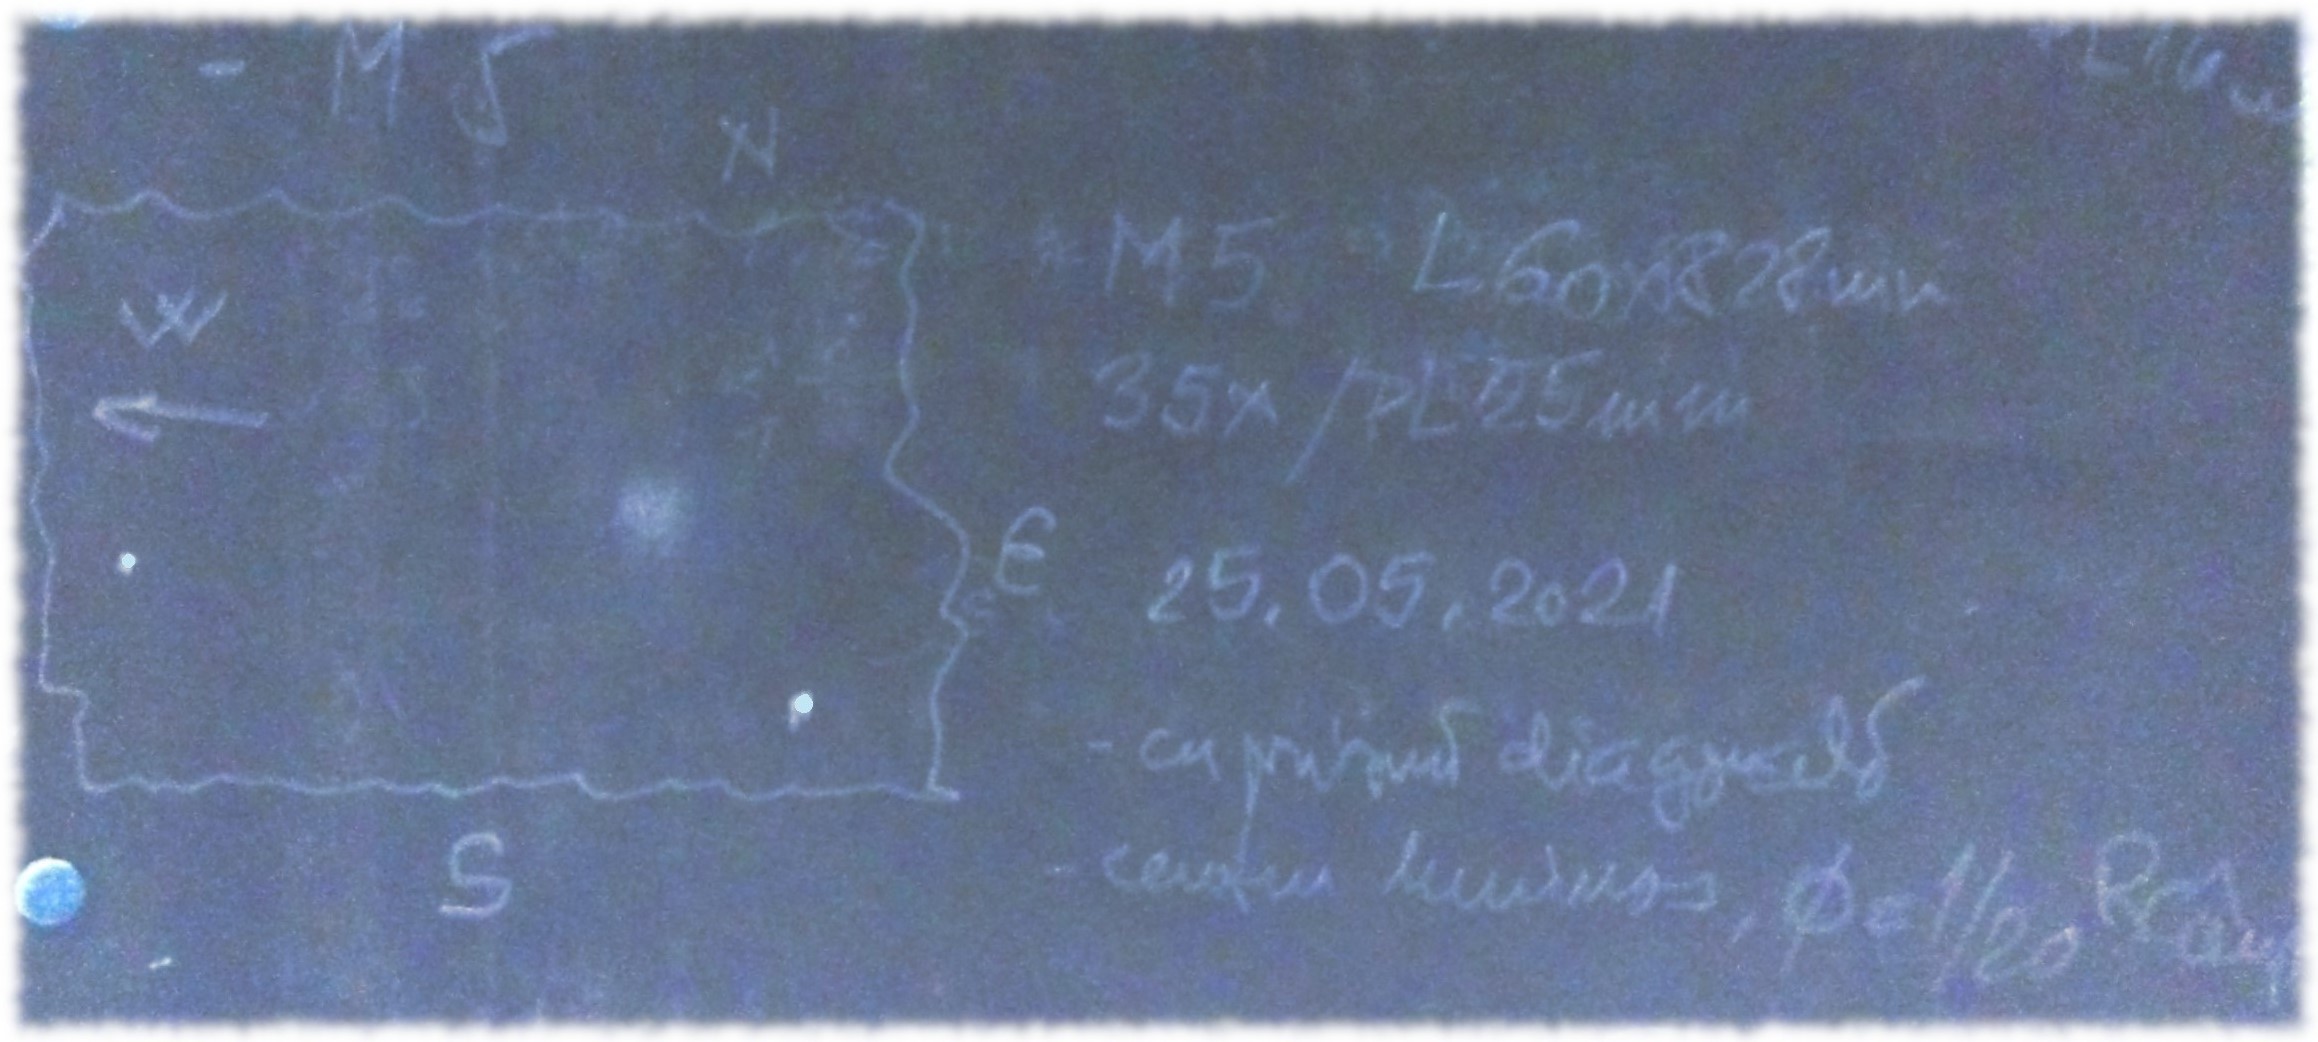 - M5
N
W
M5 L60x828mm
35x / PL 25mm
E
25.05.2021
- cu prismă diagonală
S
- centru luminos, Ø = 1/20